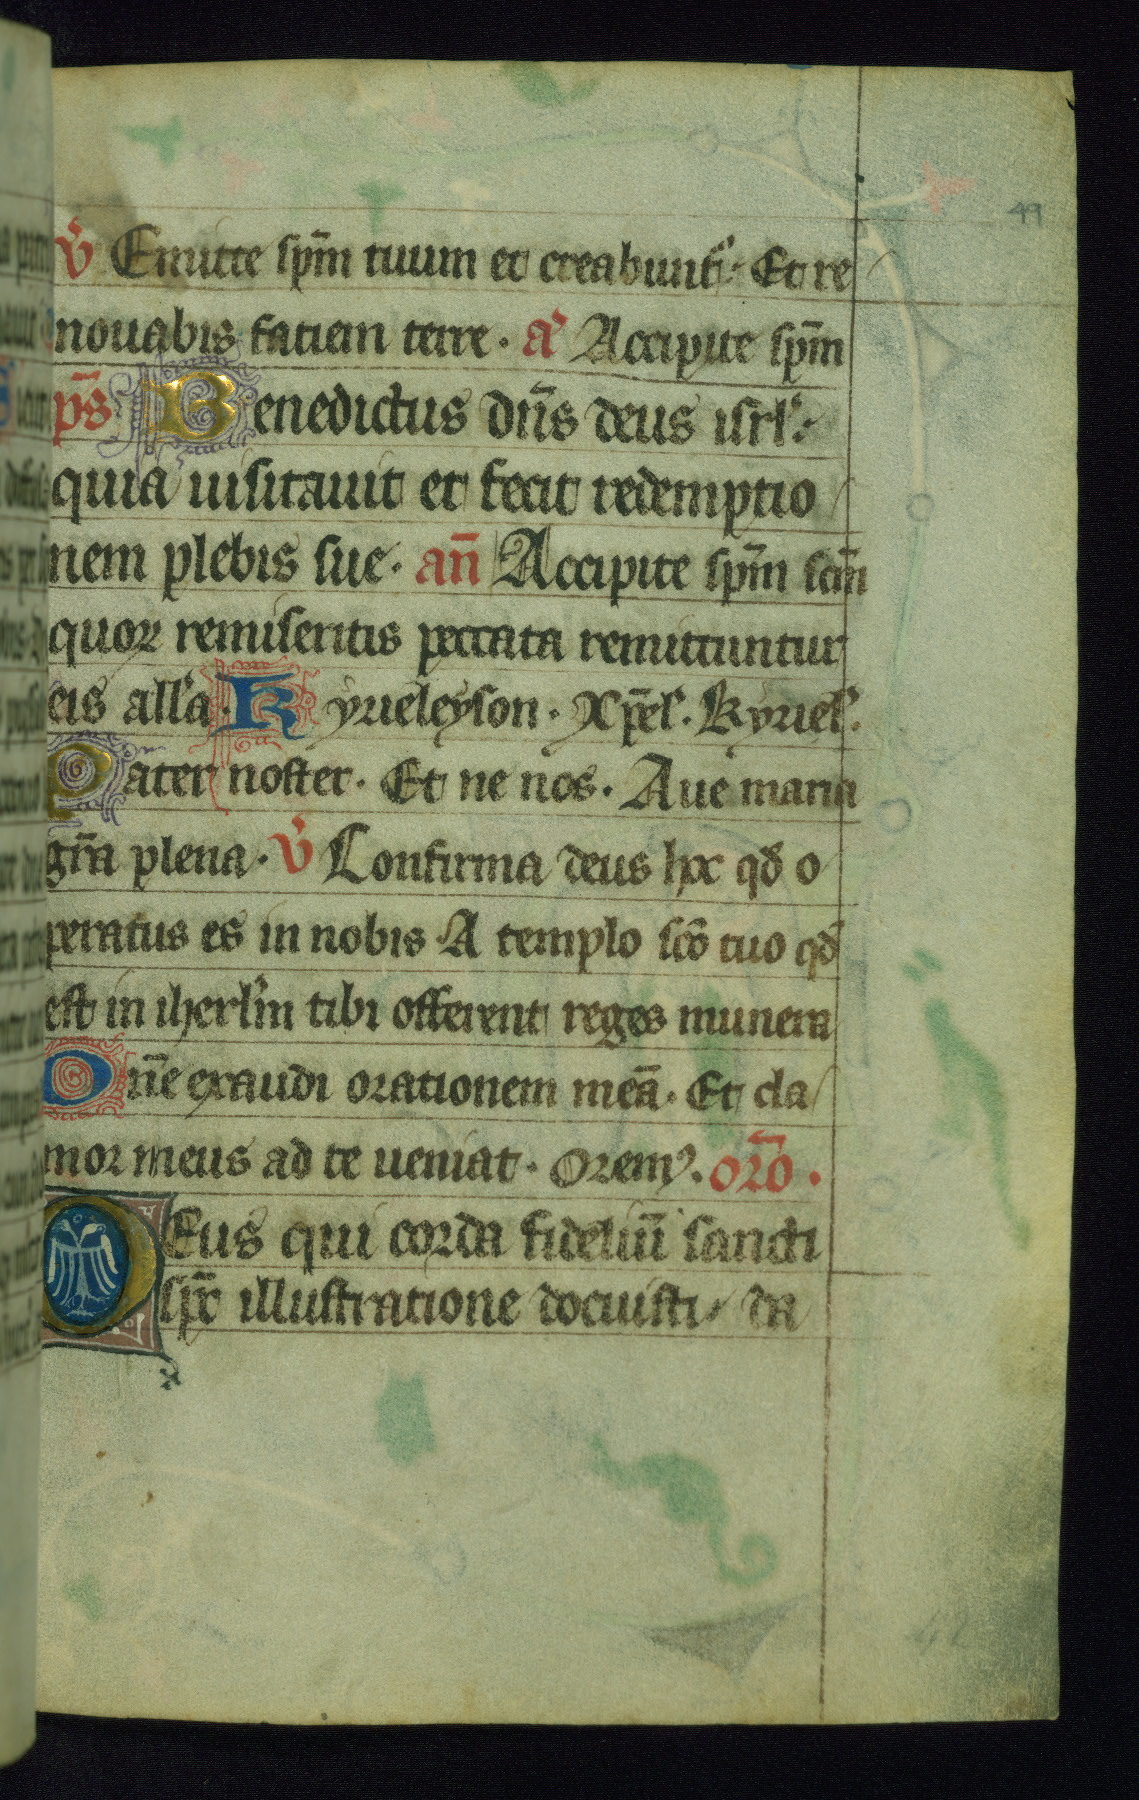 49
v̄ Emitte sp̄m tuum et creabunt᷑ · Et re
nouabis faciem terre · a᷑ Accipite sp̄m
ps̄ Benedictus dn̄s deus isrl᷑ ·
quia uisitauit et fecit redemptio
nem plebis sue · an̄ Accipite sp̄m sc̄m
quor remiseritis peccata remittuntur
eis all᷑a · Kyrieleyson · Xp̄el᷑ · Kyriel᷑ ·
Pater noster · Et ne nos · Aue maria
gr̄a plena · v̄ Confirma deus hoc qd̄ o
peratus es in nobis · A templo sc̄o tuo qd̄
est in iherl᷑m tibi offerent reges munera
Dn̄e exaudi orationem meā · Et cla
mor meus ad te ueniat · Oremꝰ · or̄o ·
Deus qui corda fideliū sancti
sp̄c illustratione docuisti / da
42